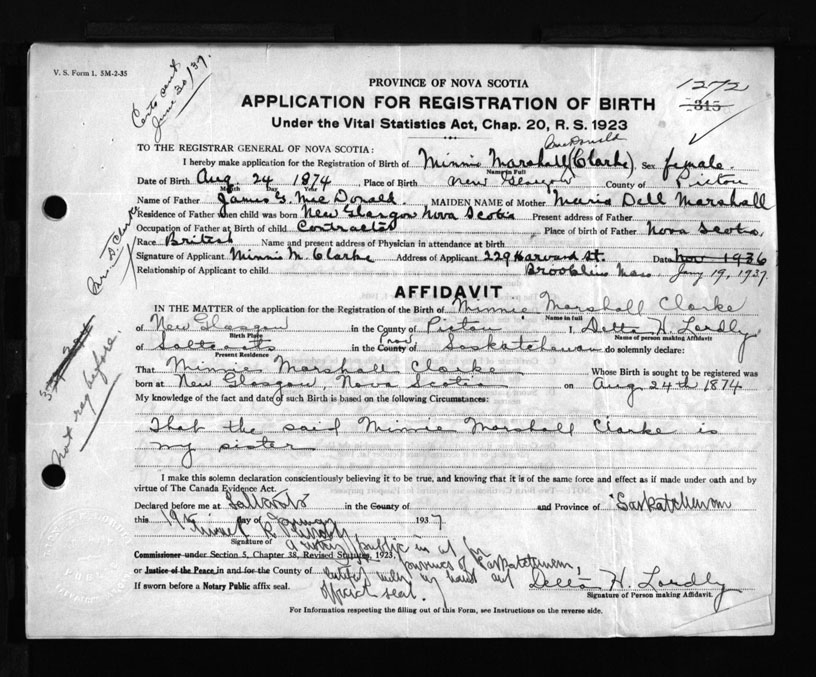 V. S. Form 1. 5M-2-35
Certo sent
June 30/37
PROVINCE OF NOVA SCOTIA
1272
315
APPLICATION FOR REGISTRATION OF BIRTH
Under the Vital Statistics Act, Chap. 20, R. S. 1923
TO THE REGISTRAR GENERAL OF NOVA SCOTIA:
I hereby make application for the Registration of Birth of Minnie Marshall (Clarke) Sex female.
Name in Full
Date of Birth Aug 24 1874, Place of Birth New Glasgow County of Pictou
Month Day Year
Name of Father James G. Mac Donald. MAIDEN NAME of Mother Maria Dell Marshall
Residence of Father when child was born New Glasgow Nova Scotia Present address of Father
Occupation of Father at Birth of child Contractor Place of birth of Father Nova Scotia.
Race British Name and present address of Physician in attendance at birth
Signature of Applicant Minnie M. Clarke Address of Applicant 229 Harvard St. Date Nov 1936
Relationship of Applicant to child Brookline Mass Jany 19, 1937.
Mrs D. Clarke
AFFIDAVIT
IN THE MATTER of the application for the Registration of the Birth of Minnie Marshall Clarke
Name in full
of New Glasgow in the County of Pictou I, Della H. Lordly
Birth Place Name of person making Affidavit
of Saltcoats in the County of Prov Saskatchewan do solemnly declare:
Present Residence
That Minnie Marshall Clarke Whose Birth is sought to be registered was
born at New Glasgow, Nova Scotia on Aug 24th 1874
not reg before.
My knowledge of the fact and date of such Birth is based on the following Circumstances:
That the said Minnie Marshall Clarke is
my sister
I make this solemn declaration conscientiously believing it to be true, and knowing that it is of the same force and effect as if made under oath and by
virtue of The Canada Evidence Act.
Declared before me at Saltcoats in the County of and Province of Saskatchewan
this 19th day of January 1937
Signature of
a notary public in & for
Commissioner under Section 5, Chapter 38, Revised Statutes, 1923, province of Saskatchewan,
or Justice of the Peace in and for the County of
my hand and Della H. Lordly
If sworn before a Notary Public affix seal. official seal.
Signature of Person making Affidavit.
For Information respecting the filling out of this Form, see Instructions on the reverse side.